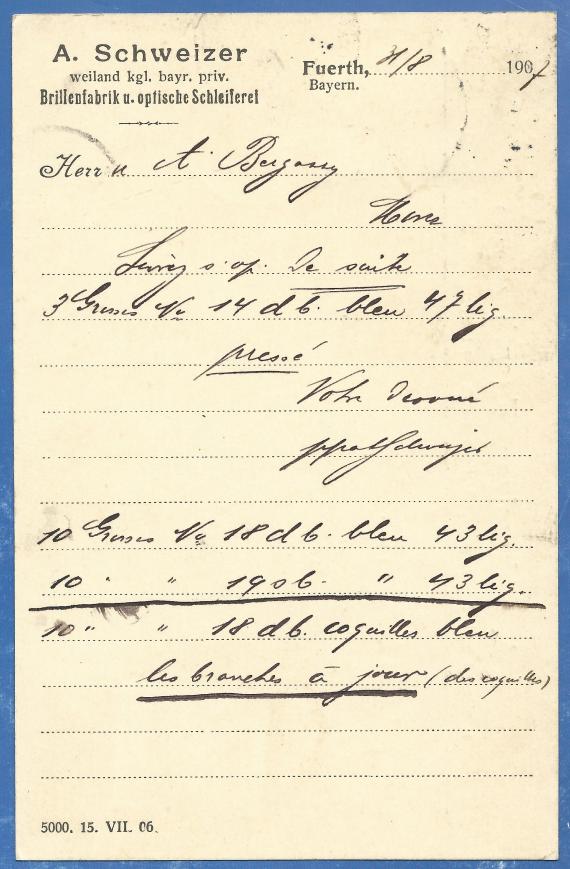 A. Schweizer
weiland kgl. bayr. priv.
Brillenfabrik u. optische Schleiferei
Fuerth, 31/8 1907
Bayern.
Herrn A. Bergassy
Livrez s. op. de suite
3 Grosses No 14 d b. bleu 47 lig.
pressé
Votre dévoué
ppa Schweizer
10 Grosses No 18 d b. bleu 43 lig.
10 " " 19 s b. " 43 lig.
10 " " 18 d b. coquilles bleu
les branches à jour (des coquilles)
5000. 15. VII. 06.